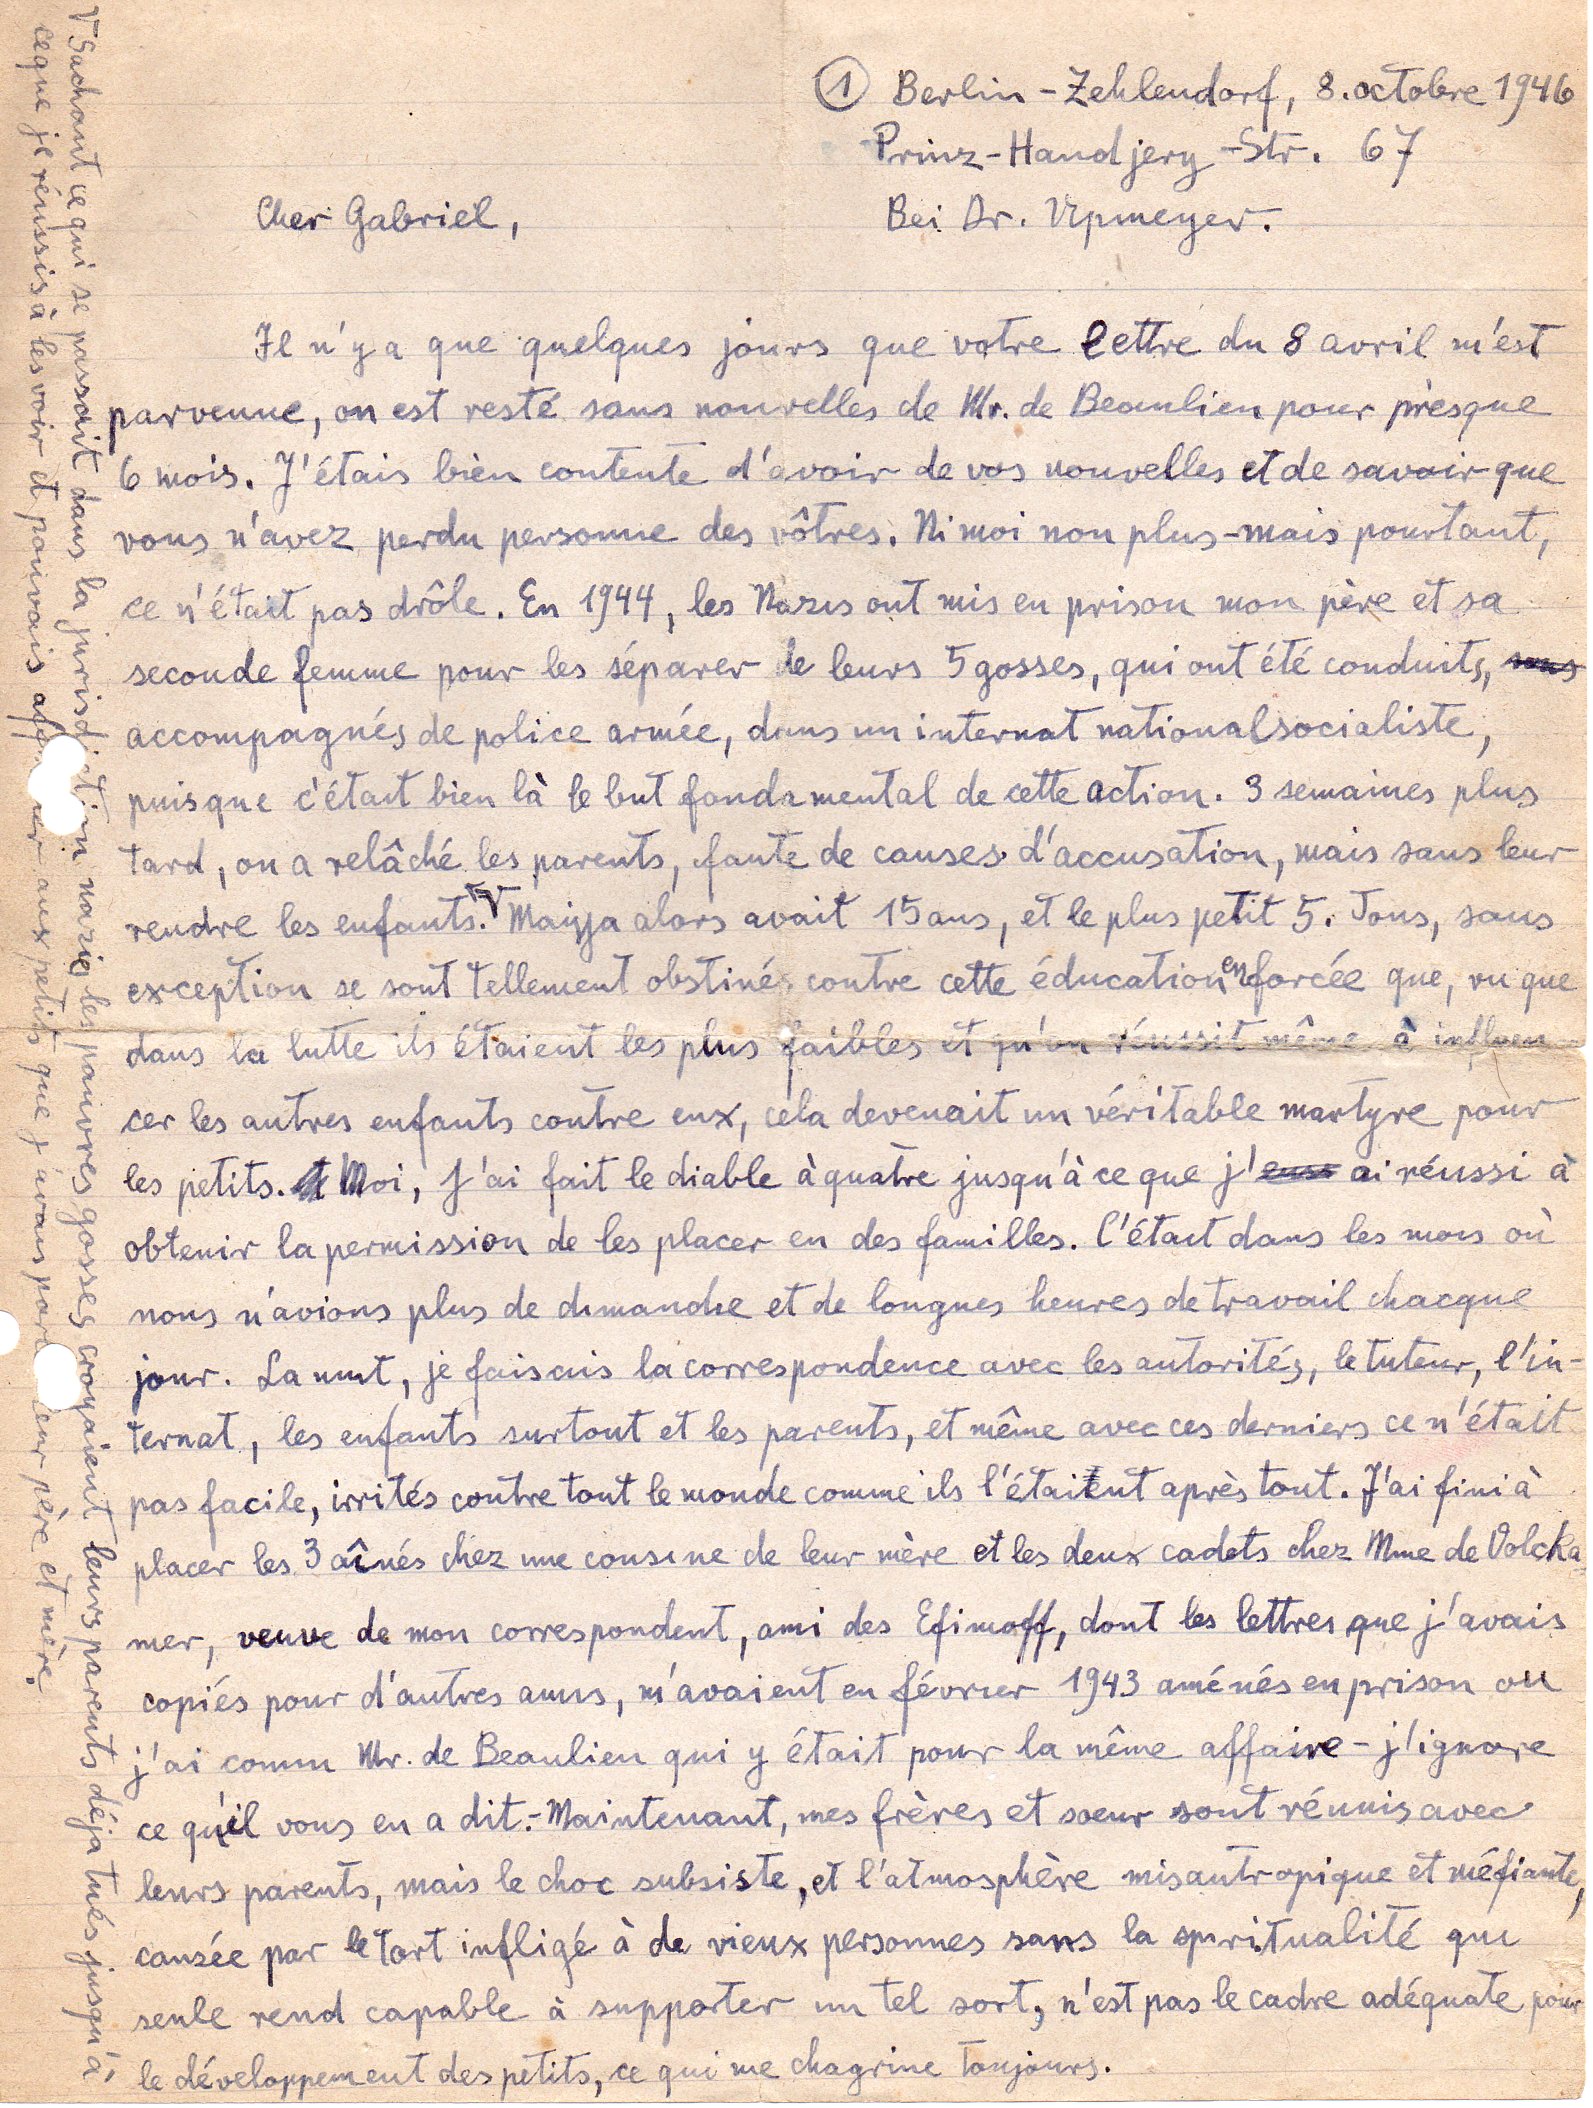 ① Berlin-Zehlendorf, 8. octobre 1946
Prinz-Handjery-Str. 67
Cher Gabriel,
Bei Dr. Upmeyer.
Il n'y a que quelques jours que votre lettre du 8 avril m'est
parvenue, on est resté sans nouvelles de Mr. de Beaulieu pour prèsque
6 mois. J'étais bien contente d'avoir de vos nouvelles et de savoir que
vous n'avez perdu personne des vôtres. Ni moi non plus - mais pourtant,
ce n'était pas drôle. En 1944, les Nazis ont mis en prison mon père et sa
seconde femme pour les séparer de leurs 5 gosses, qui ont été conduits, sous
accompagnés de police armée, dans un internat nationalsocialiste,
puisque c'était bien là le but fondamental de cette action. 3 semaines plus
tard, on a relâché les parents, faute de causes d'accusation, mais sans leur
rendre les enfants. V Maiya alors avait 15 ans, et le plus petit 5. Tous, sans
exception se sont tellement obstinés contre cette éducation enforcée que, vu que
dans la lutte ils étaient les plus faibles et qu'on réussit même à influen-
cer les autres enfants contre eux, cela devenait un véritable martyre pour
les petits. Moi, j'ai fait le diable à quatre jusqu'à ce que j'eusse ai réussi à
obtenir la permission de les placer en des familles. C'était dans les mois où
nous n'avions plus de dimanche et de longues heures de travail chacque
jour. La nuit, je faisais la correspondence avec les autorités, le tuteur, l'in-
ternat, les enfants surtout et les parents, et même avec ces derniers ce n'était
pas facile, irrités contre tout le monde comme ils l'étaient après tout. J'ai fini à
placer les 3 aînés chez une cousine de leur mère et les deux cadets chez Mme de Volcka=
mer, veuve de mon correspondent, ami des Efimoff, dont les lettres que j'avais
copiés pour d'autres amis, m'avaient en février 1943 aménés en prison ou
j'ai connu Mr. de Beaulieu qui y était pour la même affaire - j'ignore
ce qu'il vous en a dit. - Maintenant, mes frères et soeur sont réunis avec
leurs parents, mais le choc subsiste, et l'atmosphère misantropique et méfiante,
causée par le tort infligé à de vieux personnes sans la spiritualité qui
seule rend capable à supporter un tel sort, n'est pas le cadre adéquate pour
le développement des petits, ce qui me chagrine toujours.
V Sachant ce qui se passait dans la jurisdiction nazie, les pauvres gosses croyaient leurs parents déja tués jusqu'à
ce que je réussis à les voir et pouvais aux petits que j'avais père et mère.